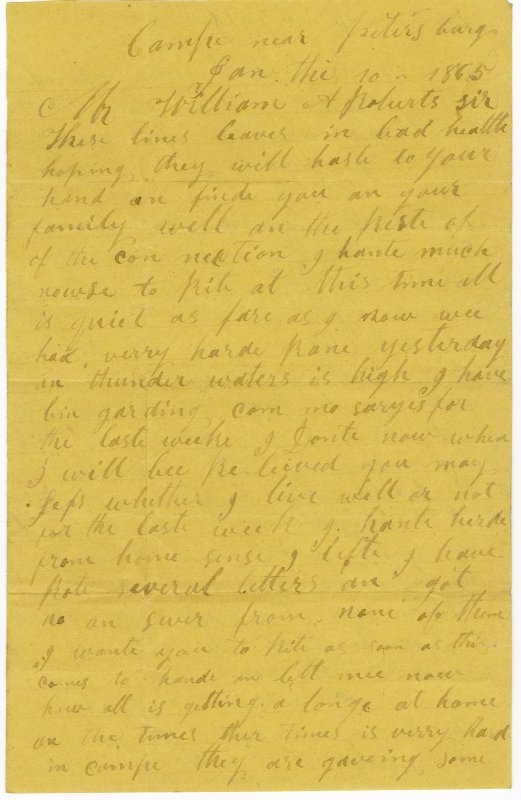 Campe near petersburg
Jan the 10 - 1865
Mr William A Roberts sir
These lines leaves in bad health
hoping they will haste to your
hand an finde you an your
family well an the reste of
of the con nection I hante much
nowse to rite at this time all
is quiet as fare as I now wee
had verry harde rane yesterday
an thunder waters is high I have
bin garding com mo saryes for
the laste weeke I Donte now when
I will bee re lieved you may
gess whether I live well or not
for the last week I hante herde
from home sense I lefte I have
rote several letters an got
no an swer from none of them
I wante you to rite as soon as this
comes to hande an lett mee now
how all is getting a longe at home
an the times ther times is verry hard
in campe they are gaveing some